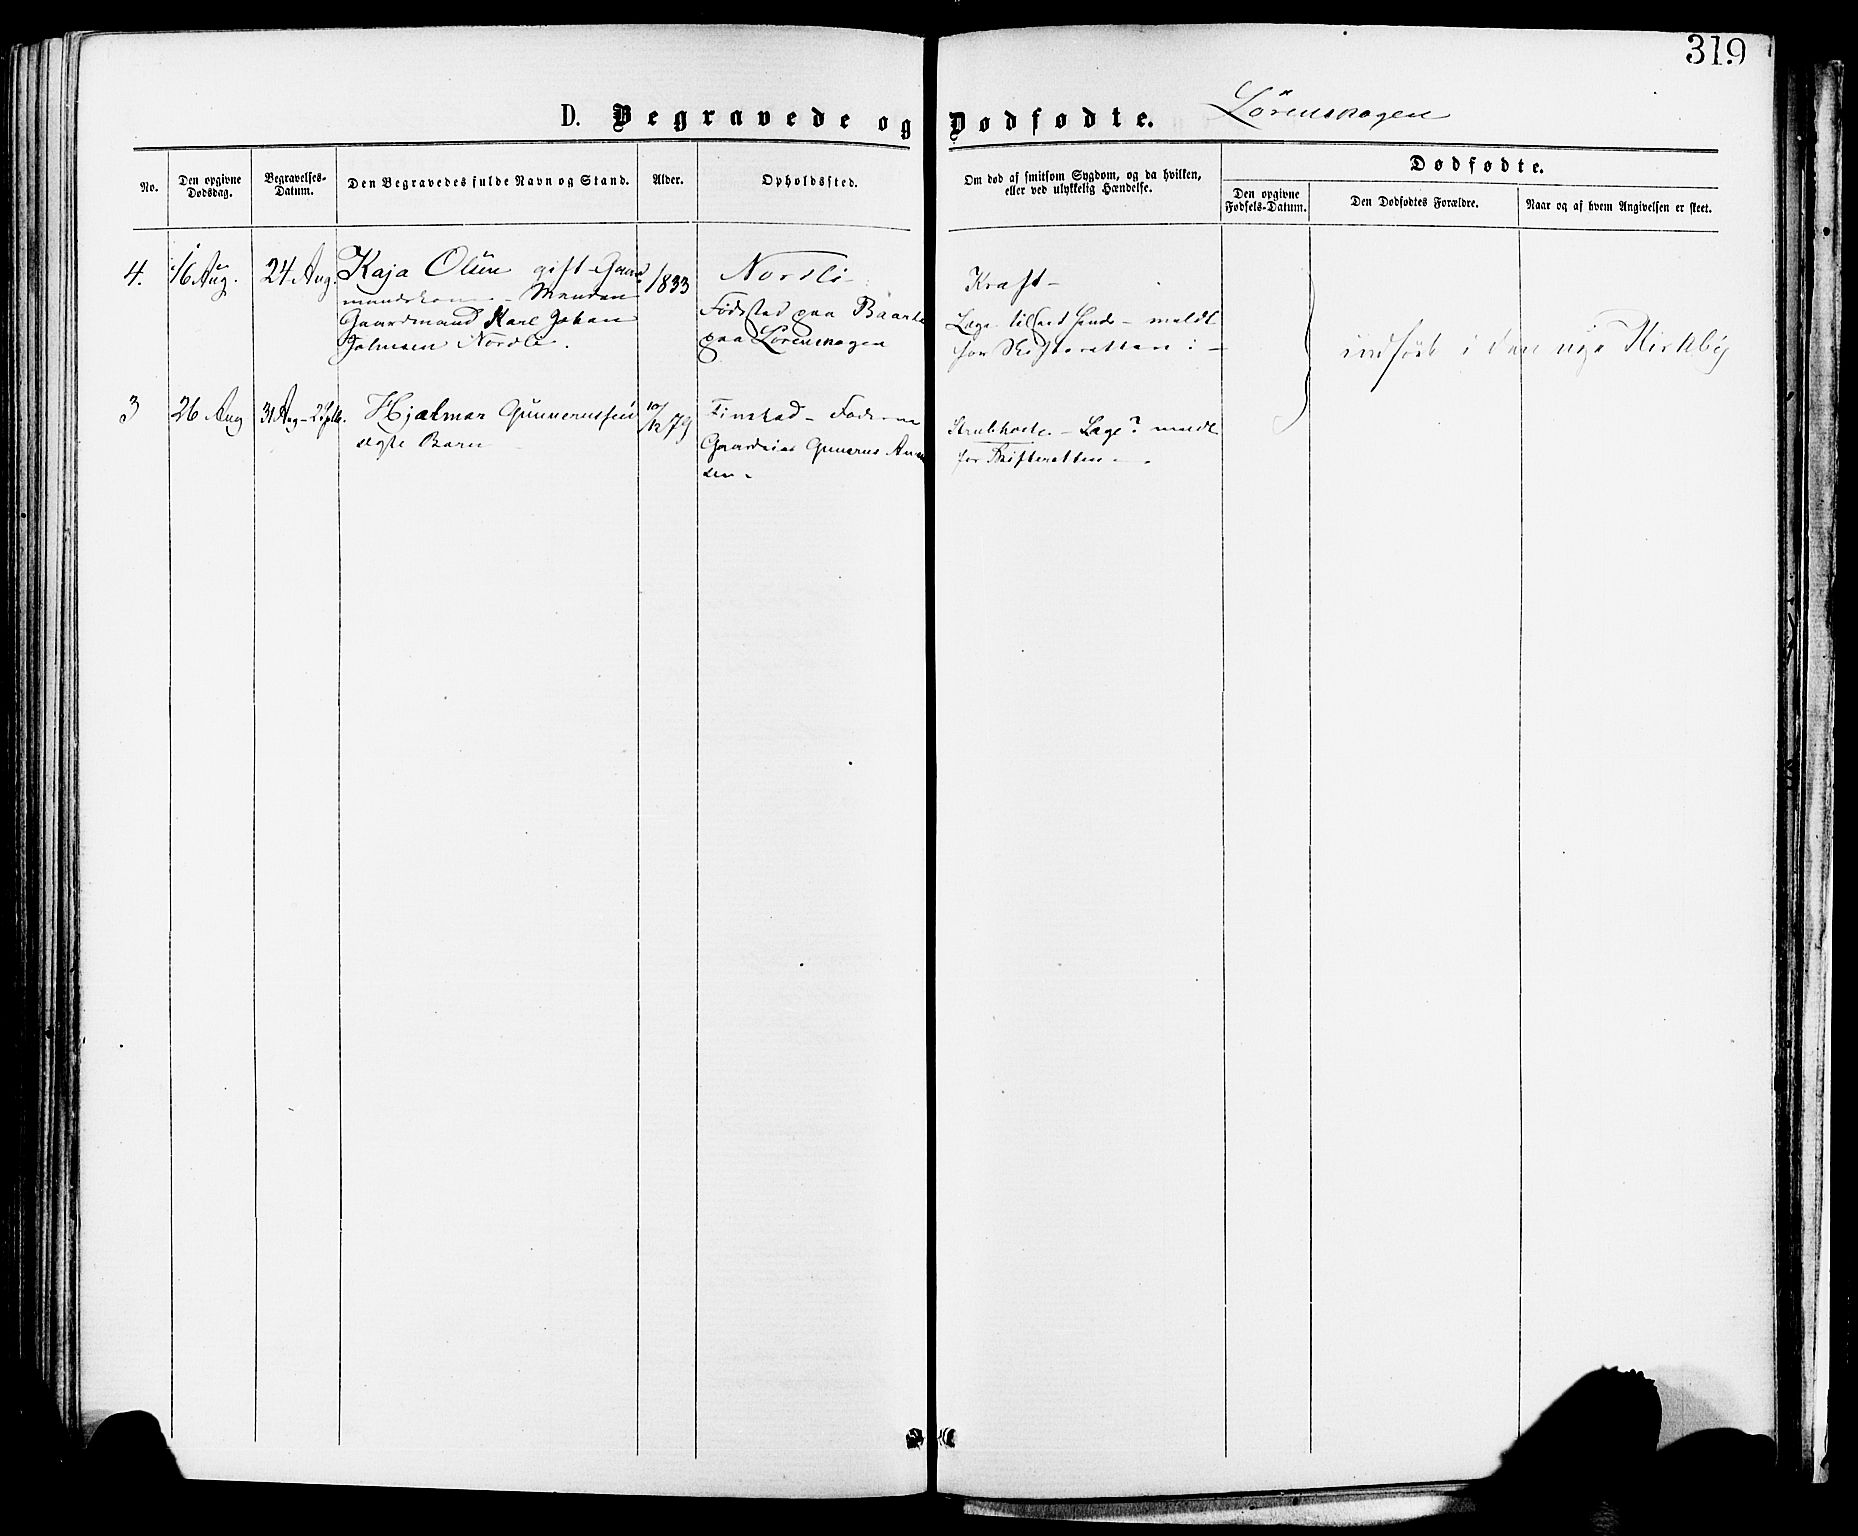 319
D. Begravede og Dødfødte. Lørenskogen
No.
Den opgivne Dødsdag.
Begravelses-Datum.
Den Begravedes fulde Navn og Stand.
Alder.
Opholdssted.
Om død af smitsom Sygdom, og da hvilken,
eller ved ulykkelig Hændelse.
Dødfødte.
Den opgivne Fødsels-Datum.
Den Dødfødtes Forældre.
Naar og af hvem Angivelsen er skeet.
4. 16 Aug. 24 Aug. Kaja Olsen gift Gaard
mandskone - Manden
Gaardmand Karl Johan
Johnsen Nordli.
1833
Nordli
Fødested paa
paa Lørenskogen
Kræft -
Læge tilsted - meldt
for Skifteretten : -
indført i den nye Kirkebog
3 26 Aug 31 Aug - 2 Hjalmar Gunnerussen
ægte Barn
79
Finstad - Faderen
Gaardeier Gunerus
sen.
Strubhoste - Læge? meldt
for Skifteretten - .